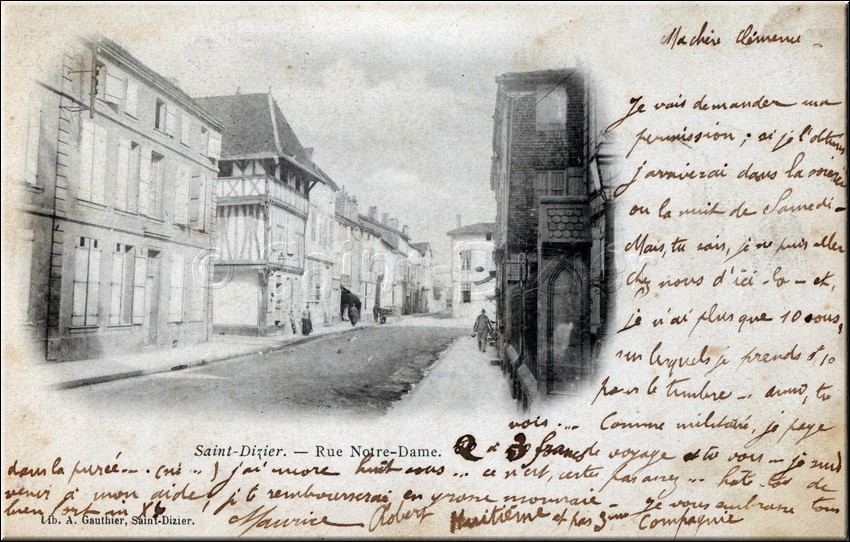 Ma chère Clémence
Je vais demander ma
permission ; si je l'obtiens
j'arriverai dans la soirée
ou la nuit de Samedi -
Mais, tu sais, je ne puis aller
chez nous d'ici-là - et,
je n'ai plus que 10 sous,
sur lesquels je prends
pour le timbre - ainsi, tu
vois ... Comme militaire, je paye
2 à 3 francs de voyage et tu vois - je suis
dans la purée - j'ai encore huit sous ... ce n'est, certes pas assez - hate toi de
venir à mon aide ! je te rembourserai en grosse monnaie - Je vous embrasse tous
bien fort
Maurice Robert Huitième et pas Compagnie
Saint-Dizier. — Rue Notre-Dame.
Lib. A. Gauthier, Saint-Dizier.